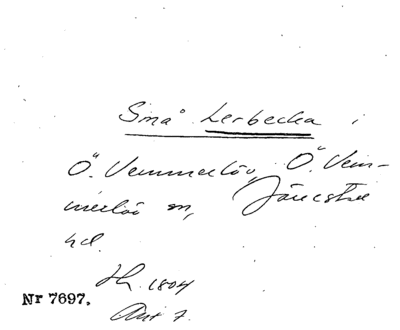 Små Lerbecka i
Ö. Vemmerlöv, Ö. Vem-
merlöv sn, Järrestad
hd.
Jh. 1804
Akt 7.
Nr 7697.